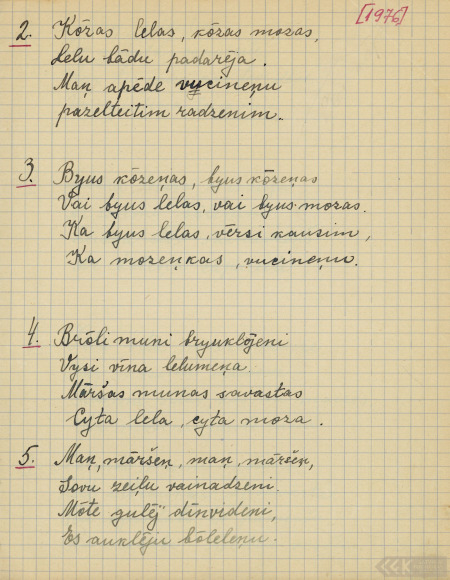 [1976]
2. Kōzas lelas, kōzas mozas,
Lelu bādu padarēja.
Maņ apēde vucineņu
pazelteitim radzenim.
3. Byus kōzeņas, byus kōzeņas
Vai byus lelas, vai byus mozas.
Ka byus lelas, vērsi kausim,
Ka mozeņkas, vucineņu.
4. Brōli muni bryuklōjeni
Vysi vīna lelumeņa.
Māršas munas savastas
Cyta lela, cyta moza.
5. Maņ, māršeņ, maņ, māršeņ,
Sovu zeiļu vainadzeni
Mōte gulēj dīnvideni,
Es auklēju bōleleņu.